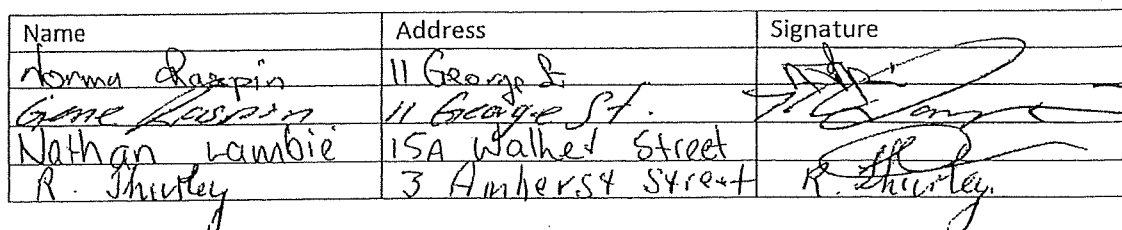 Name Address Signature
Norma Raspin 11 George St
Gene Raspin 11 George St.
Nathan Lambie 15A Walker Street
R. Thirtley 3 Amherst Street R. Thirtley.